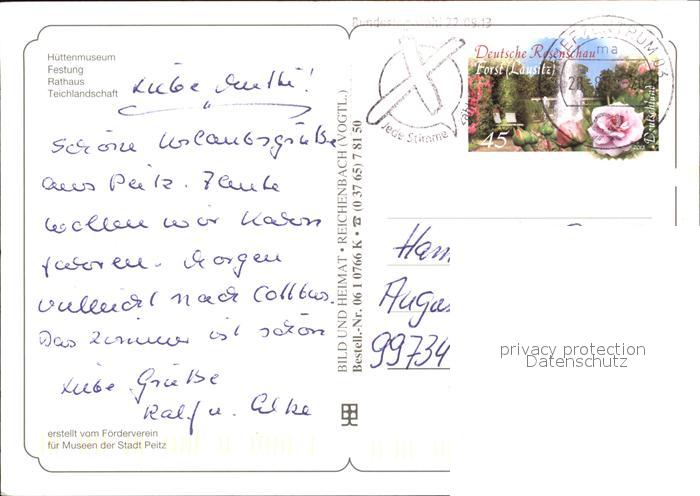 Hüttenmuseum
Festung
Rathaus
Teichlandschaft
Liebe Mutti!
schöne Urlaubsgrüße
aus Peitz. Heute
wollen wir Kahn
fahren. Morgen
vielleicht nach Cottbus.
Das Zimmer ist schön
Liebe Grüße
Ralf u. Elke
erstellt vom Förderverein
für Museen der Stadt Peitz
BILD UND HEIMAT • REICHENBACH (VOGTL.)
Bestell.-Nr. 06 1 0766 K • ☎ (0 37 65) 7 81 50
Bundestagswahl 22.09.13
Jede Stimme
Deutsche Rosenschau
Forst (Lausitz)
45
Deutschland
2013
BRIEFZENTRUM 03
ma
99734
privacy protection
Datenschutz